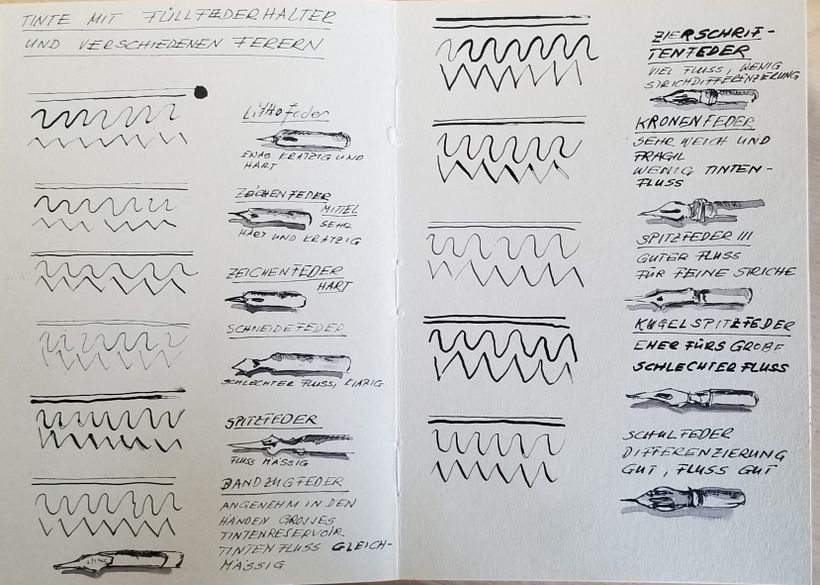 TINTE MIT FÜLLFEDERHALTER
UND VERSCHIEDENEN FERERN
Lithofeder
KRATZIG UND
HART
ZEICHENFEDER
MITTEL
SEHR
HART UND KRATZIG
ZEICHENFEDER
HART
SCHNEIDEFEDER
SCHLECHTER FLUSS,
SPITZFEDER
FLUSS MÄSSIG
BANDZUGFEDER
ANGENEHM IN DEN
HÄNDEN GROSSES
TINTENRESERVOIR
TINTENFLUSS GLEICH-
MÄSSIG
ZIERSCHRIF-
TENFEDER
VIEL FLUSS, WENIG
STRICHDIFFERENZIERUNG
KRONENFEDER
SEHR WEICH UND
FRAGIL
WENIG TINTEN-
FLUSS
SPITZFEDER III
GUTER FLUSS
FÜR FEINE STRICHE
KUGELSPITZFEDER
EHER FÜRS GROBE
SCHLECHTER FLUSS
SCHULFEDER
DIFFERENZIERUNG
GUT, FLUSS GUT